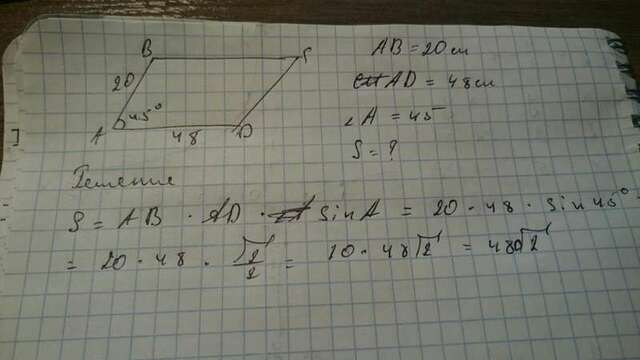 B C
20
45°
A 48 D
AB = 20 см
AD = 48 см
∠A = 45
S = ?
Решение
S = AB · AD · sin A = 20 · 48 · sin 45°
= 20 · 48 · √2/2 = 10 · 48√2 = 480√2